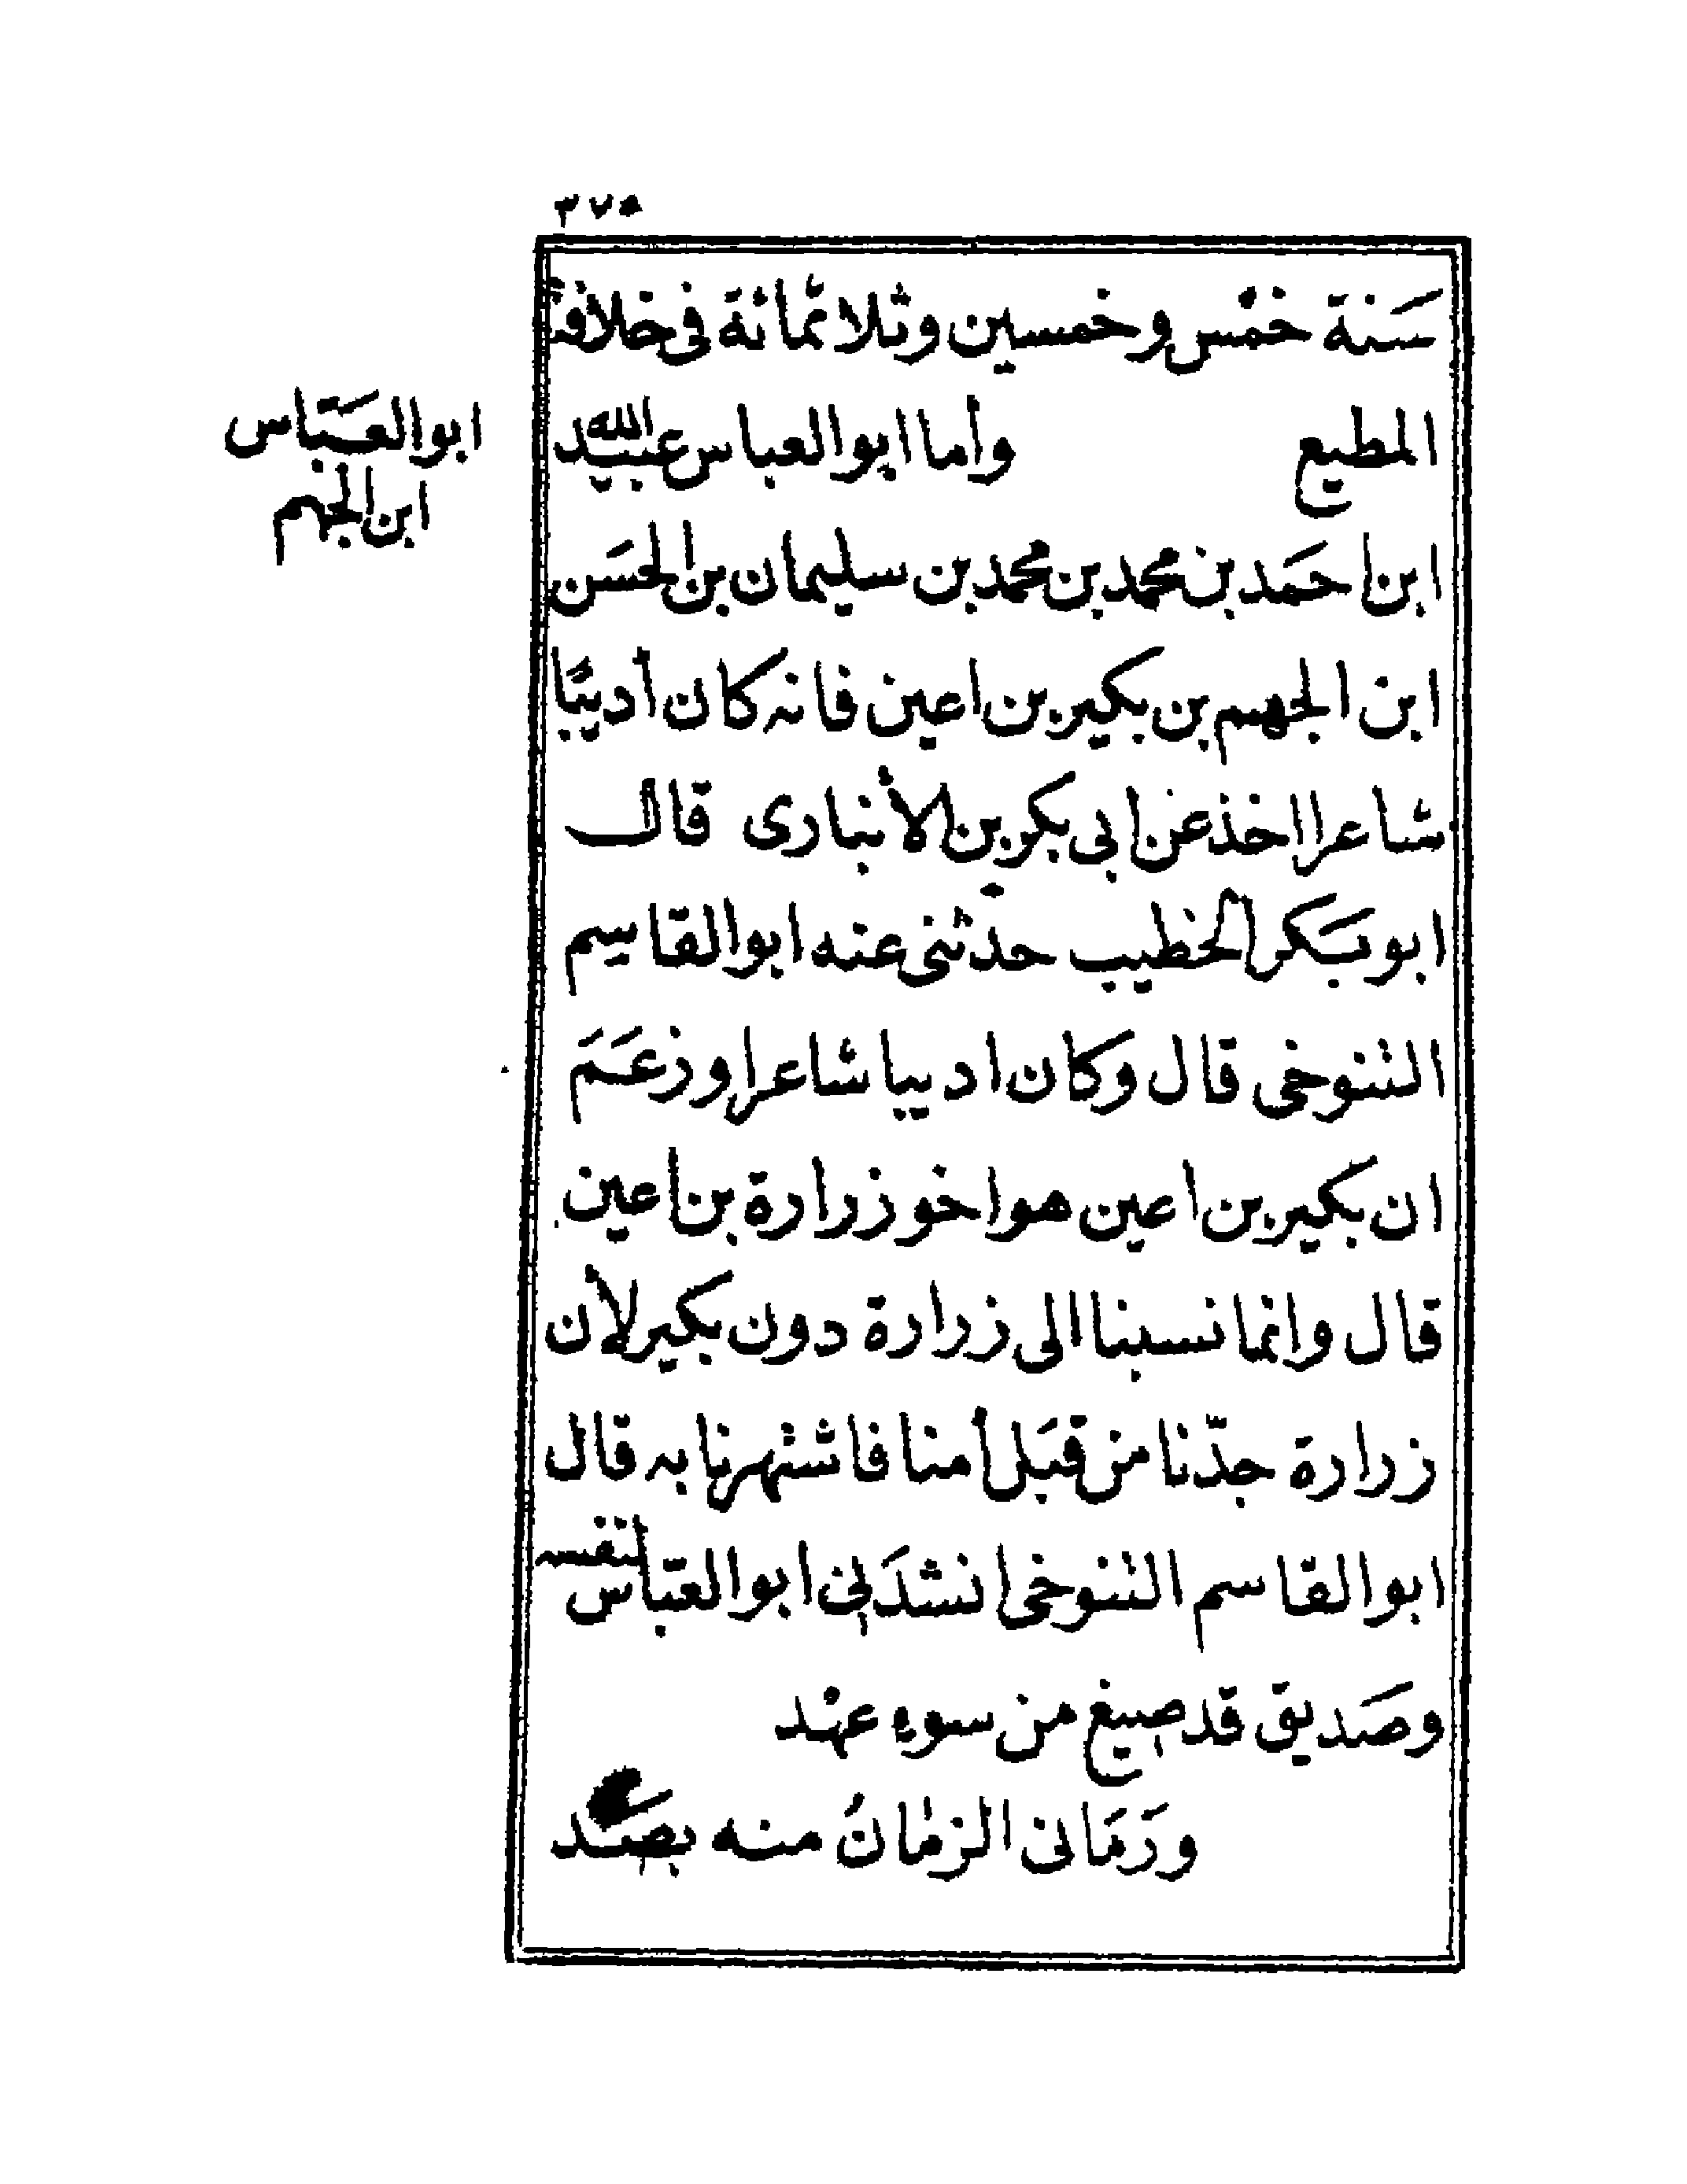 ٣٧٥
سَنة خمْس وخمسين وثلاثمائة فى خلافة
المطيع وأما ابوالعباس عبيد الله
ابوالعَبّاس
ابن الجهم
ابن احمَد بن محمد بن محمد بن سليمان بن الحسَن
ابن الجهم بن بكير بن اعين فانه كان أديبًا
شاعرا اخذ عن ابى بكر بن الأنبارى قال
ابو بَكر الخطيب حدثنى عنه ابو القاسم
التنوخى قال وكان اديبا شاعرا وزعَمَ
ان بكير بن اعين هو اخو زرارة بن اعين
قال وانما نسبنا الى زرارة دون بكير لأن
زرارة جدّنا من قبَل أمنا فاشتهرنا به قال
ابو القاسم التنوخى انشدَنى ابو العبّاس لنفسه
وصَديق قد صيغ من سوء عهْد
ورَمَانى الزمانُ منه بصَد